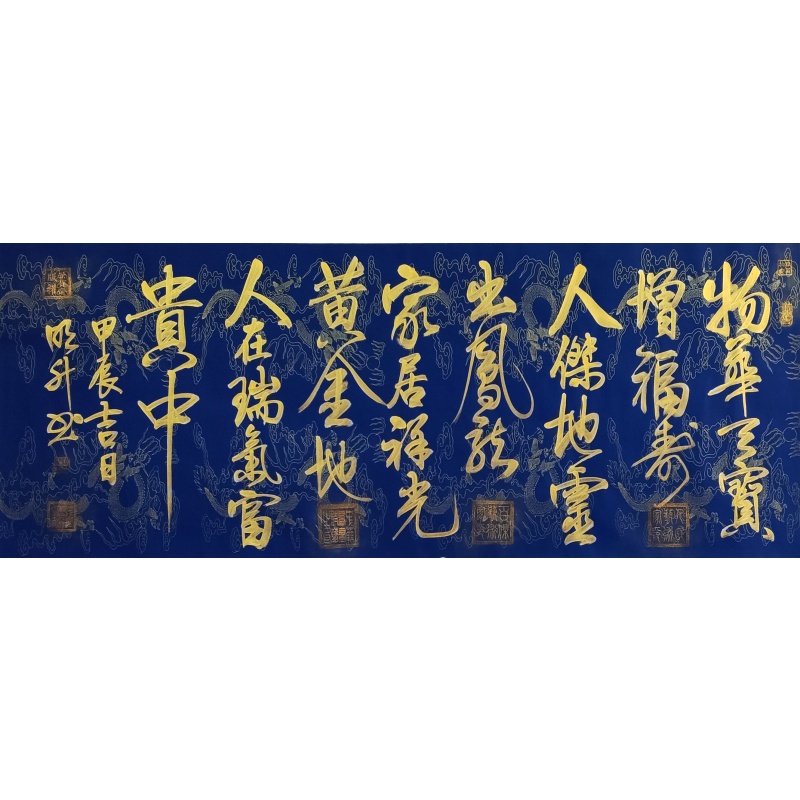 物華天寶
增福壽
人傑地靈
出鳳龍
家居祥光
黄金地
人在瑞氣富
貴中
甲辰吉日
明升书